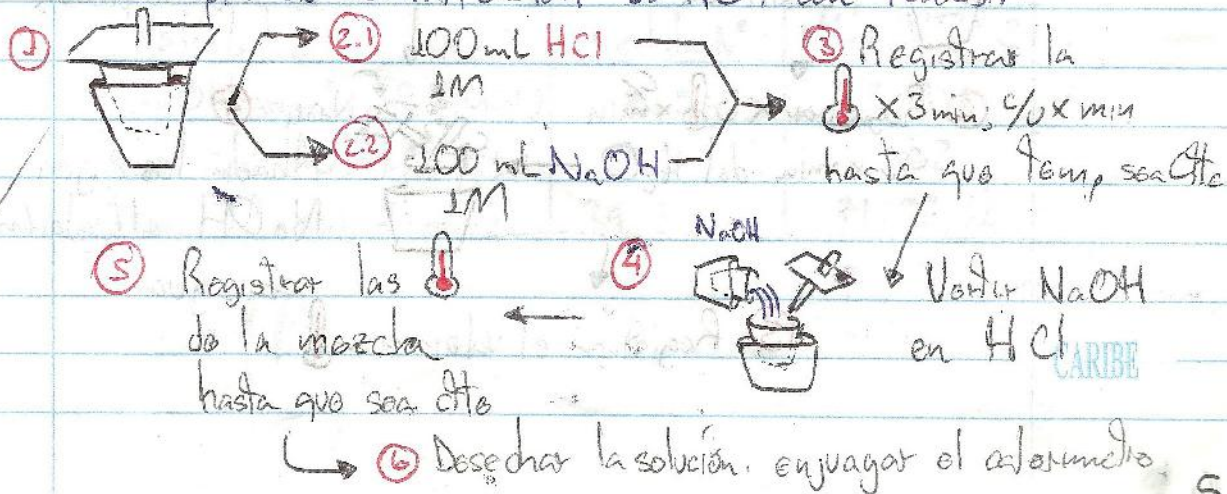 ①
2.1 100 mL HCl
1M
2.2 100 mL NaOH
1M
③ Registrar la
x 3 min; c/u x min
hasta que Temp sea Ctte
④ NaOH
Vertir NaOH
en HCl
CARIBE
⑤ Registrar las
de la mezcla
hasta que sea ctte
⑥ Desechar la solución. enjuagar el calorimetro